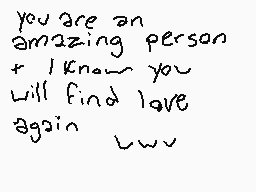 you are an
amazing person
+ I know you
will find love
again uwu